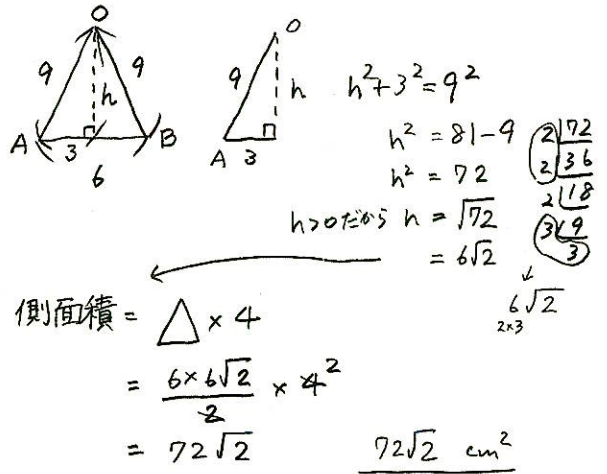 O
9 9
h
A 3 B
6
O
9 h
A 3
h²+3²=9²
h² = 81-9
h² = 72
h>0だから h = √72
= 6√2
2 72
2 36
2 18
3 9
3
6√2
2×3
側面積 = △ × 4
= 6×6√2/2 × 4 2
= 72√2
72√2 cm²